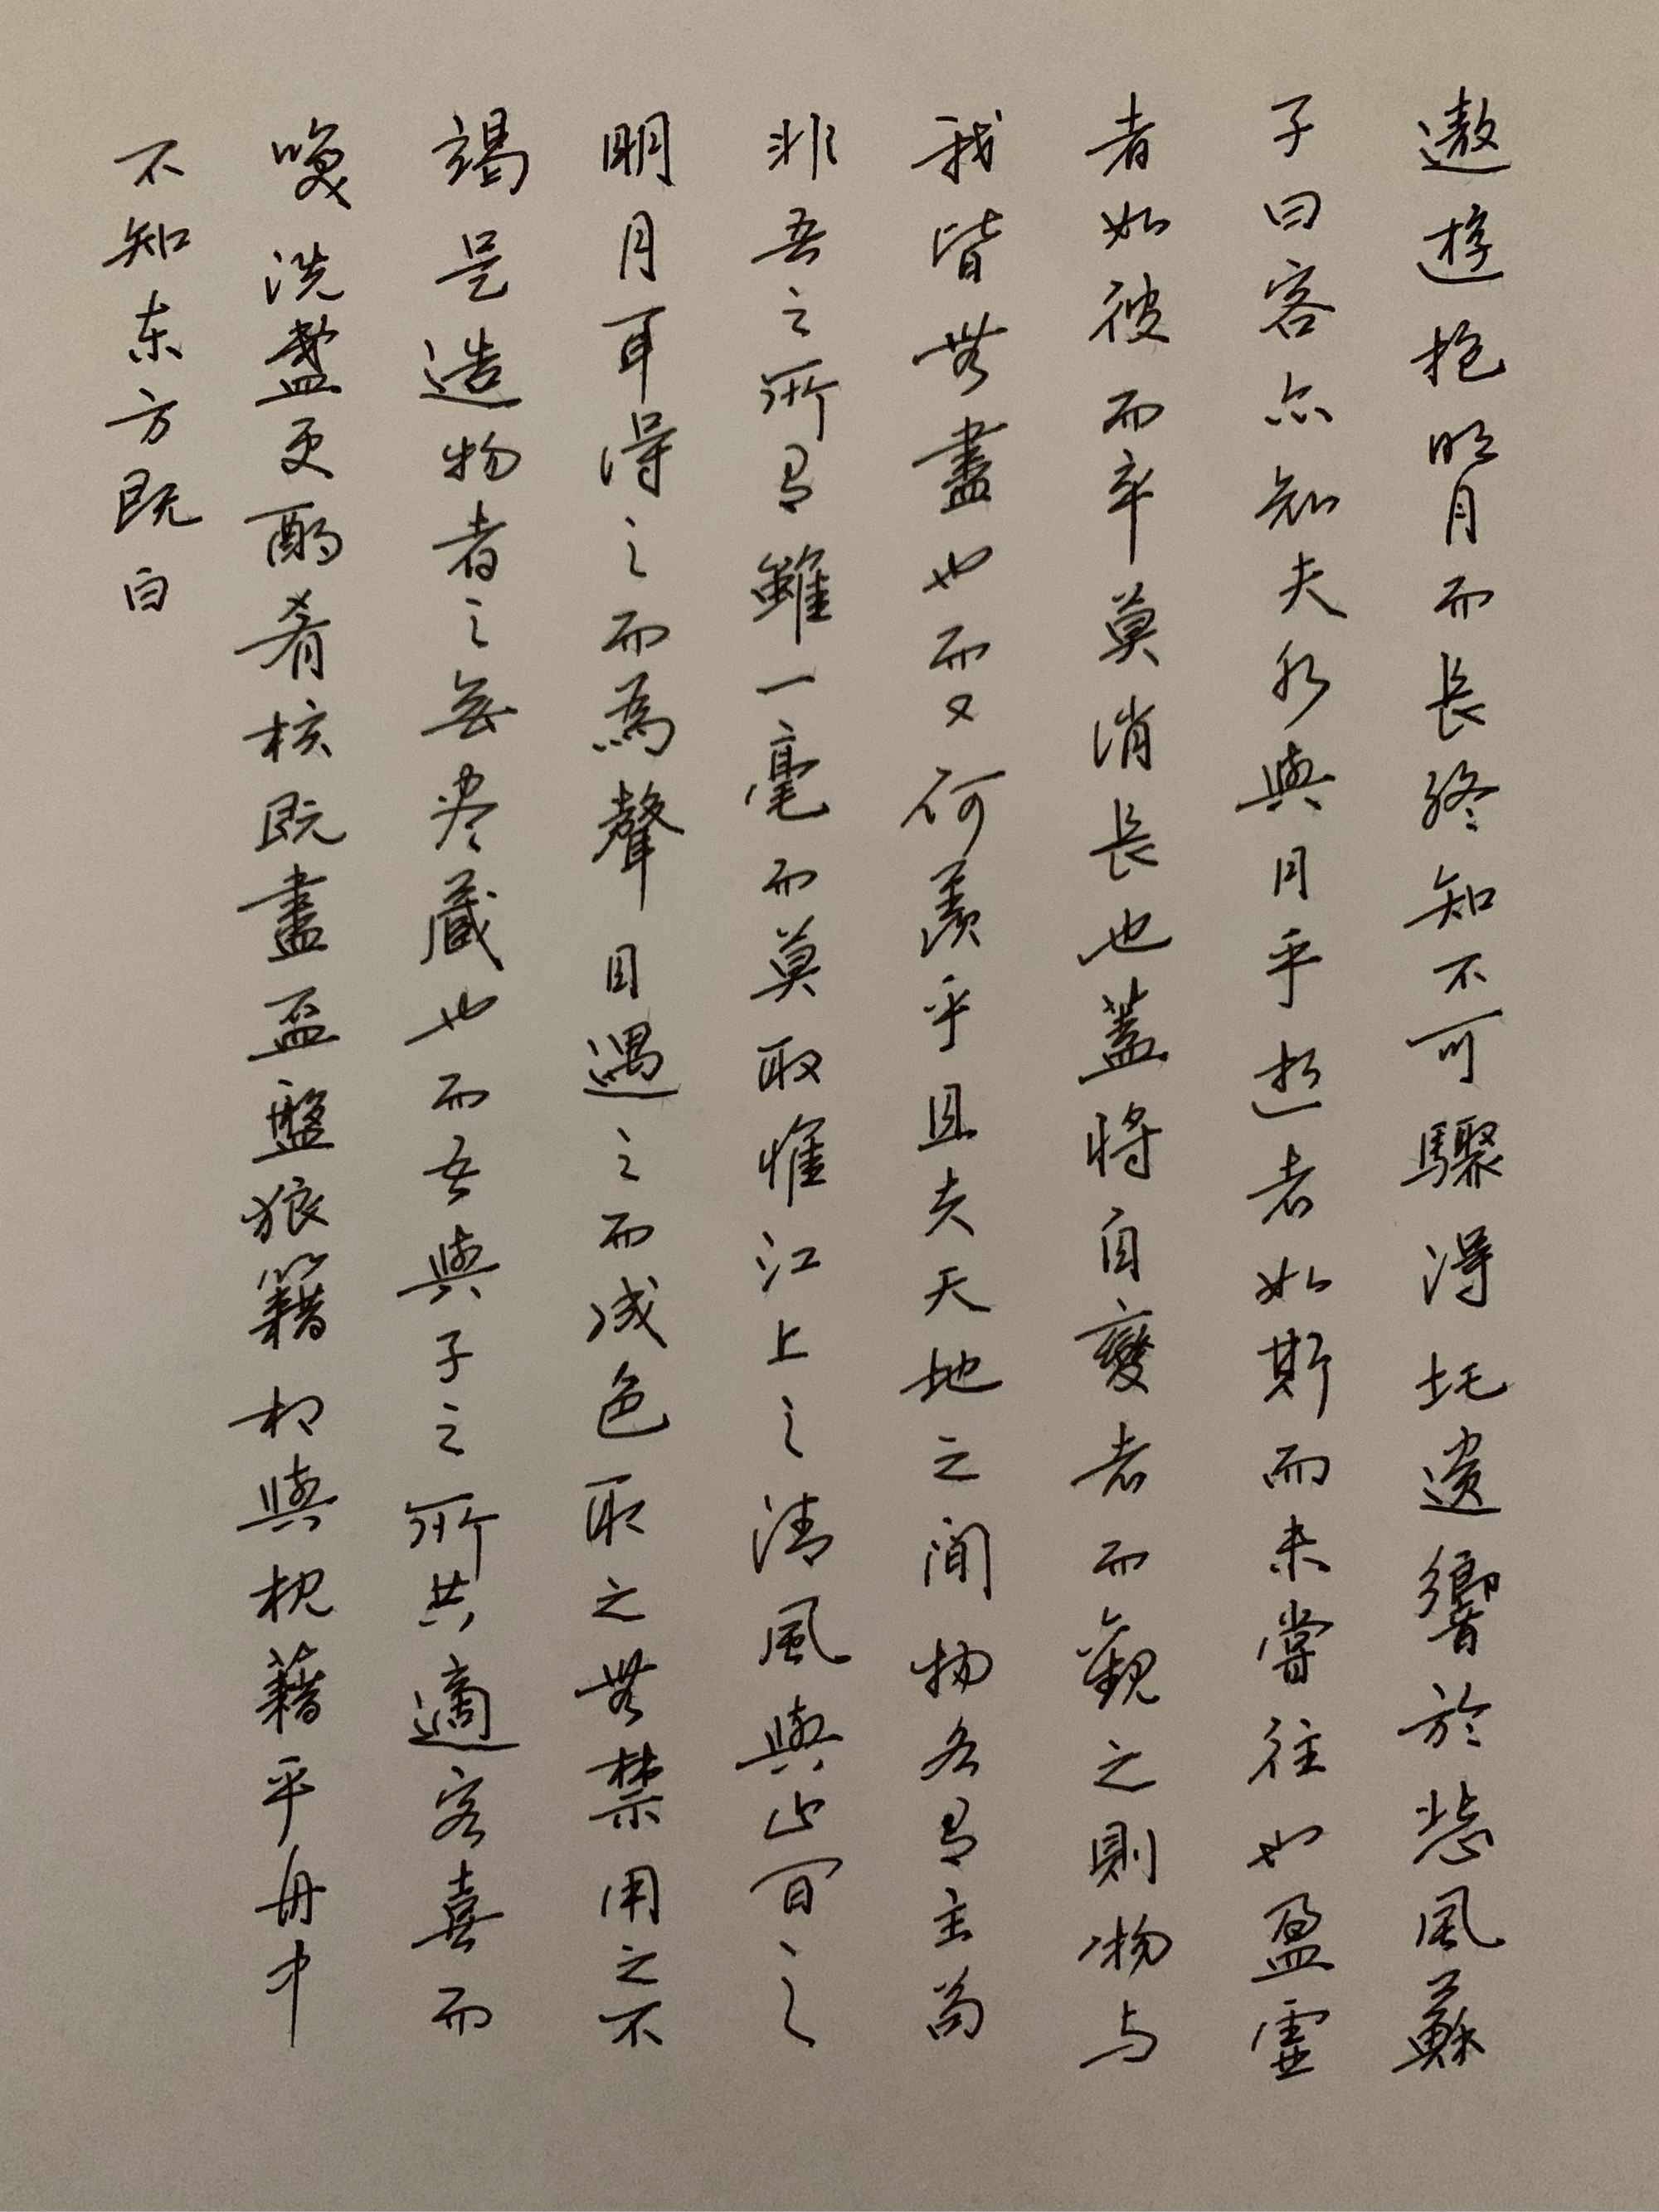 遨遊抱明月而長終知不可驟得托遺響於悲風蘇
子曰客亦知夫水與月乎逝者如斯而未嘗往也盈虛
者如彼而卒莫消長也蓋將自變者而觀之則物与
我皆無盡也而又何羨乎且夫天地之間物各有主苟
非吾之所有雖一毫而莫取惟江上之清風與山間之
明月耳得之而為聲目遇之而成色取之無禁用之不
竭是造物者之無尽藏也而吾與子之所共適客喜而
咲洗盞更酌肴核既盡盃盤狼籍相與枕藉乎舟中
不知东方既白